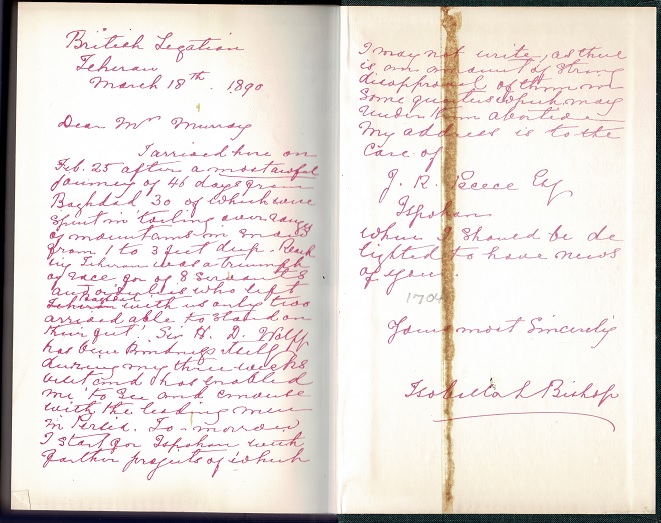 British Legation
Teheran
March 18th. 1890
Dear Mr Murray
I arrived here on
Feb. 25 after a most awful
journey of 46 days from
Baghdad 30 of which were
spent in toiling over ranges
of mountains in snow
from 1 to 3 feet deep. Reach
ing Teheran was a triumph
of race for of 8 servants
and orderlies who left
Baghdad
Teheran with us only two
arrived able to stand on
their feet! Sir H. D. Wolff
has been kindness itself
during my three weeks
visit and has enabled
me to see and converse
with the leading men
in Persia. To-morrow
I start for Ispahan with
farther projects of which
I may not write, as there
is an amount of strong
disapproval of them in
some quarters which may
render them abortive
My address is to the
care of
J. R. Preece Esq
Ispahan
where I should be de
lighted to have news
of you.
1704
Yours most sincerely
Isabella L Bishop